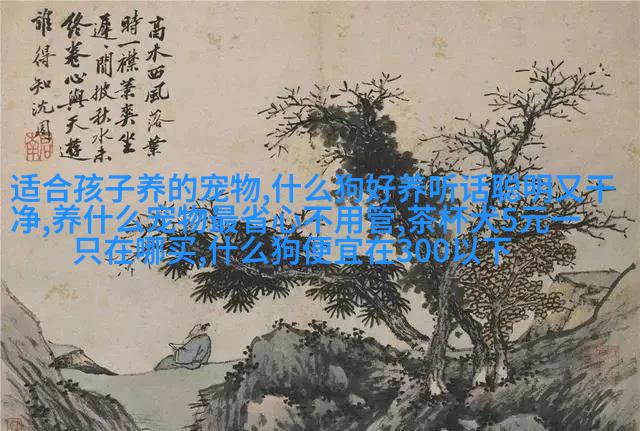 高木西風落葉
時一襟蕭爽坐
遲遲閒披秋水未
終卷心與天遊
誰得知沈周
适合孩子养的宠物,什么狗好养听话聪明又干
净,养什么宠物最省心不用管,茶杯犬5元一
只在哪买,什么狗便宜在300以下